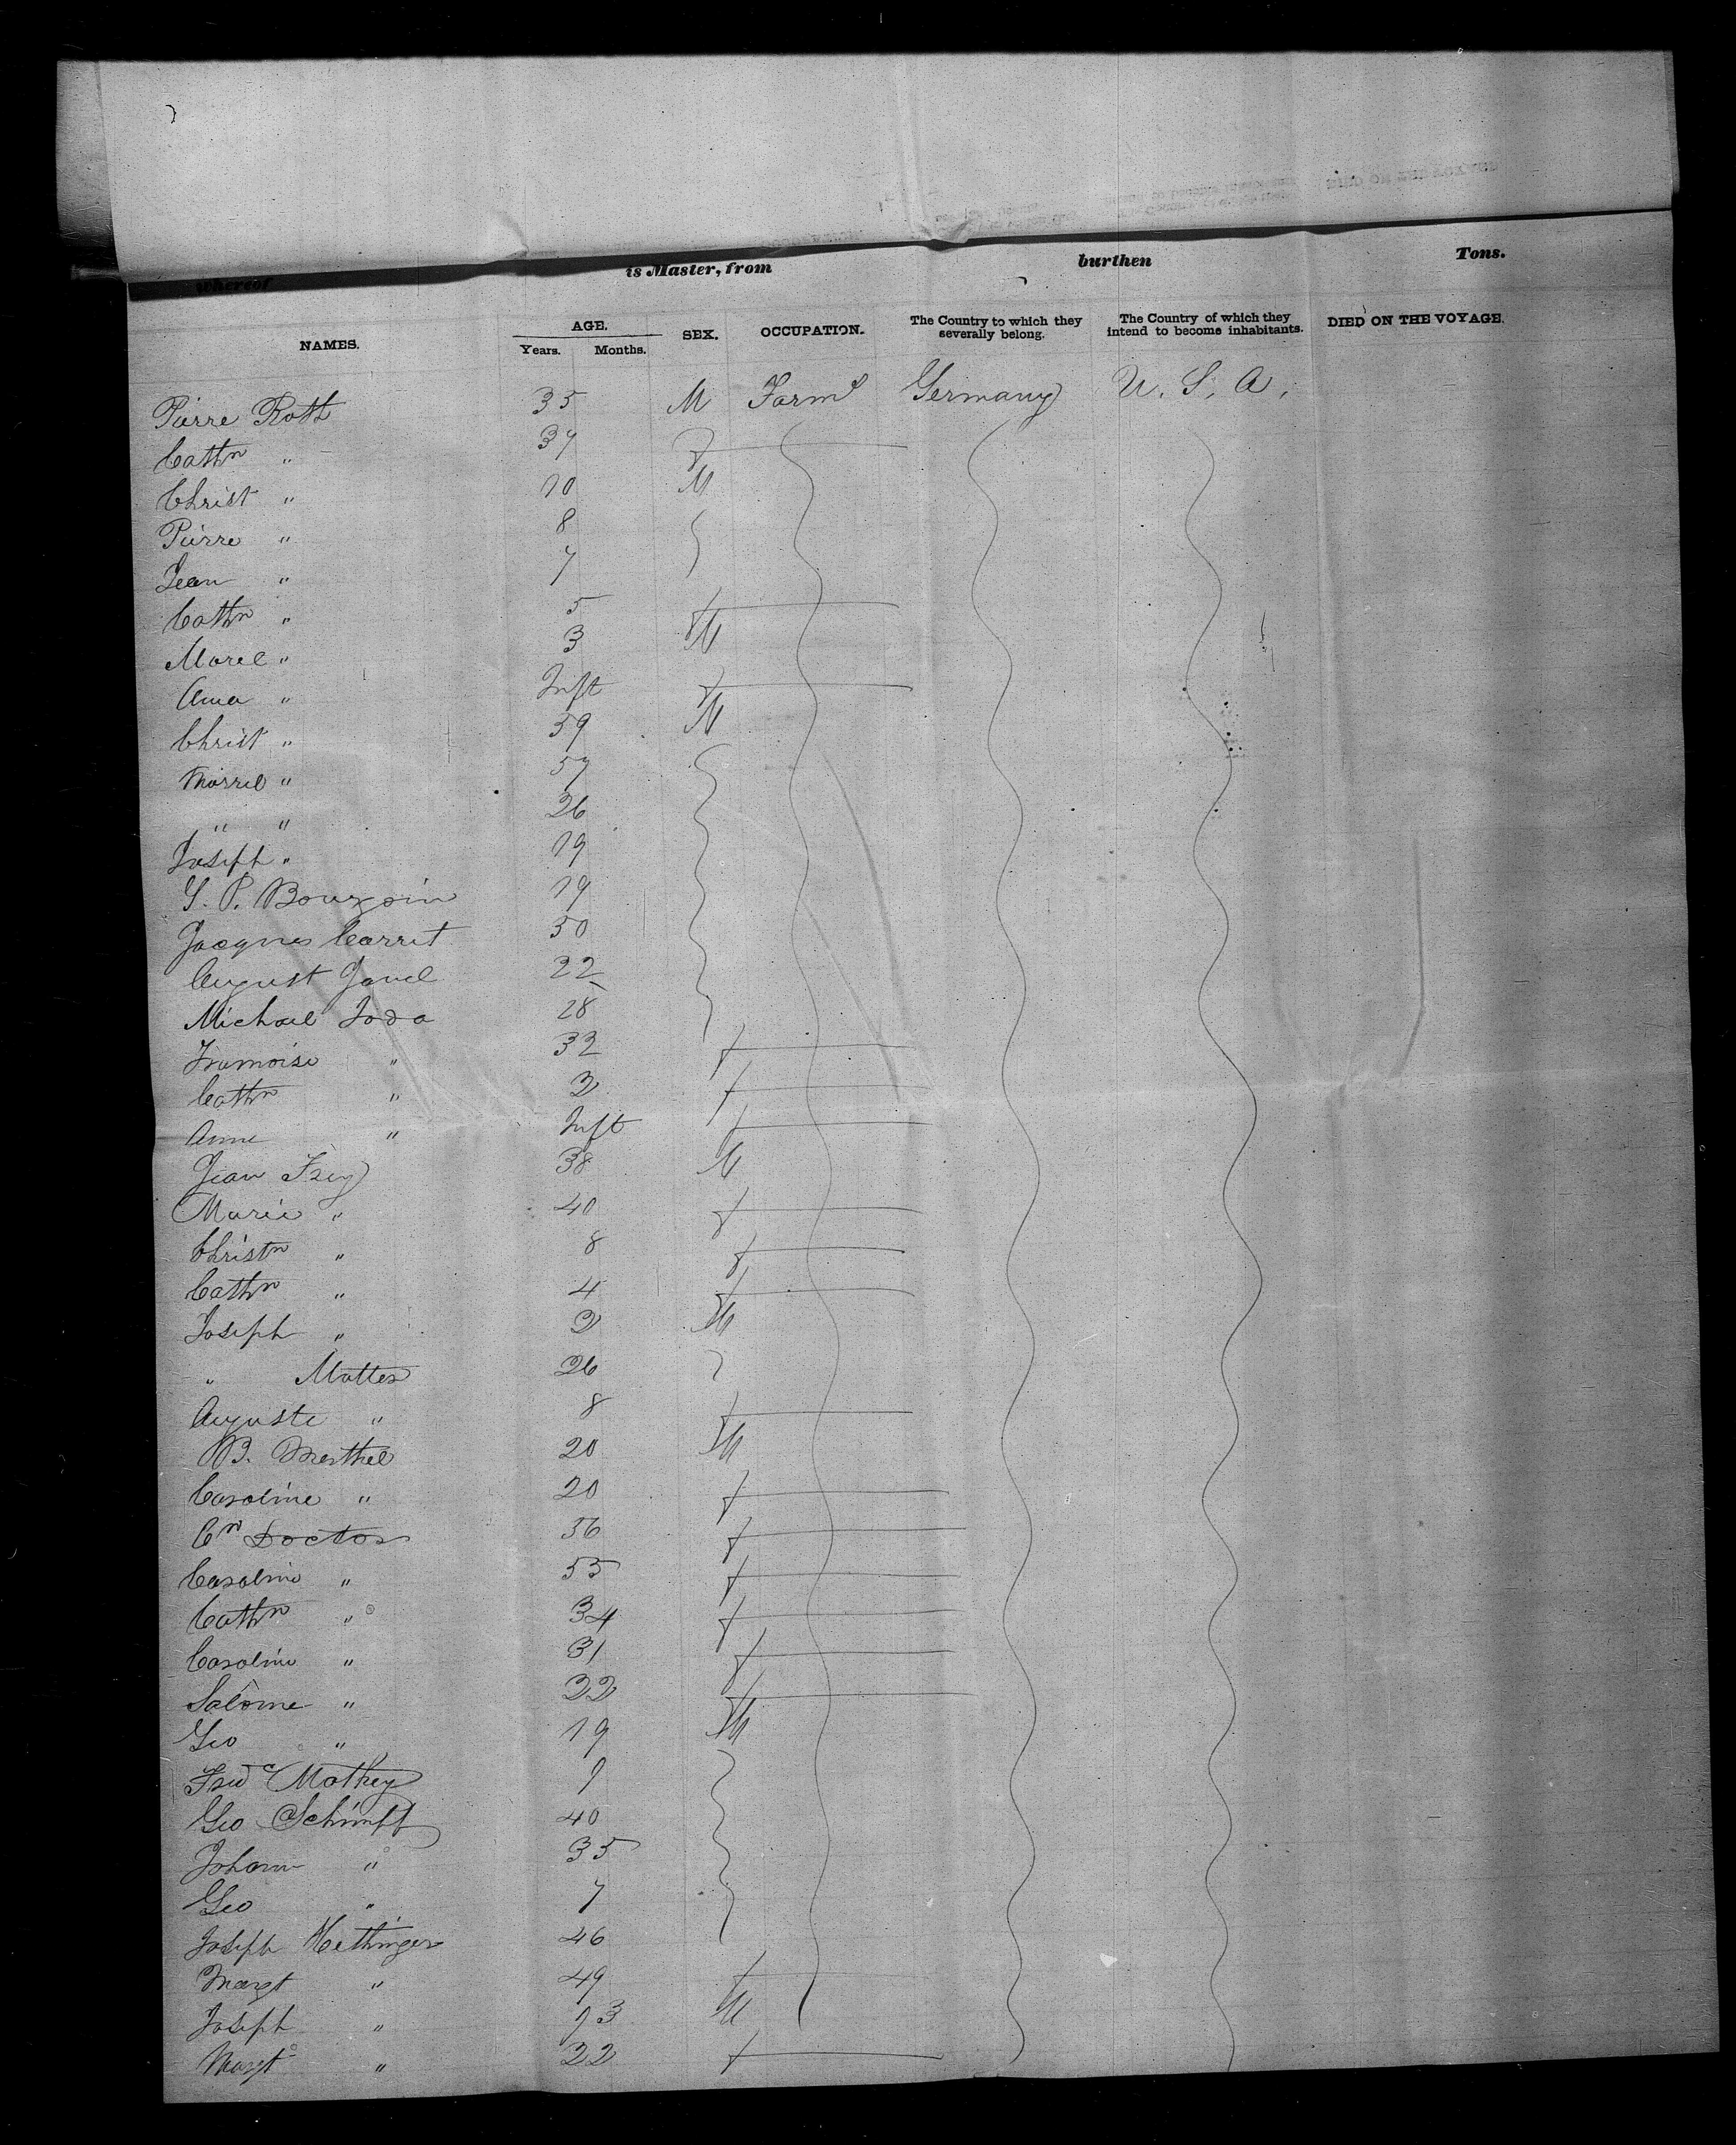 whereof is Master, from burthen Tons.
NAMES. AGE. Years. Months. SEX. OCCUPATION. The Country to which they severally belong. The Country of which they intend to become inhabitants. DIED ON THE VOYAGE.
Pierre Roth 35 M Farmr Germany U. S. A.
Cathn " 37 f
Christ " 10 M
Pierre " 8
Jean " 7
Cathn " 5 f
Morel " 3 M
Anna " Inft f
Christ " 59 M
Morrel " 57
" " 26
Joseph " 19
P. Bourgoin 19
Jacques Carret 50
August 22
Michael Joda 28
Francoise " 32 f
Cathn " 2 f
Anne " Inft f
Jean Frey 38 M
Marie " 40 f
Christn " 8 f
Cathn " 4 f
Joseph " 2 M
" Matter 26
Auguste " 8 f
B. Merthel 20 M
Caroline " 20 f
Cn Doctor 56 f
Caroline " 55 f
Cathn " 34 f
Caroline " 31 f
Salome " 22 f
Geo " 19 M
Fred Mathey 9
Geo Schimpf 40
Johann " 35
Geo " 7
Joseph Hethinger 46
Margt " 49 f
Joseph " 23 M
Margt " 22 f